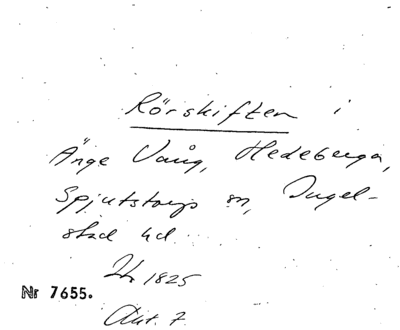 Rörskiften i
Änge Vång, Hedeberga,
Spjutstorps sn, Ingel-
stad hd
1825
Nr 7655.
Akt. 7